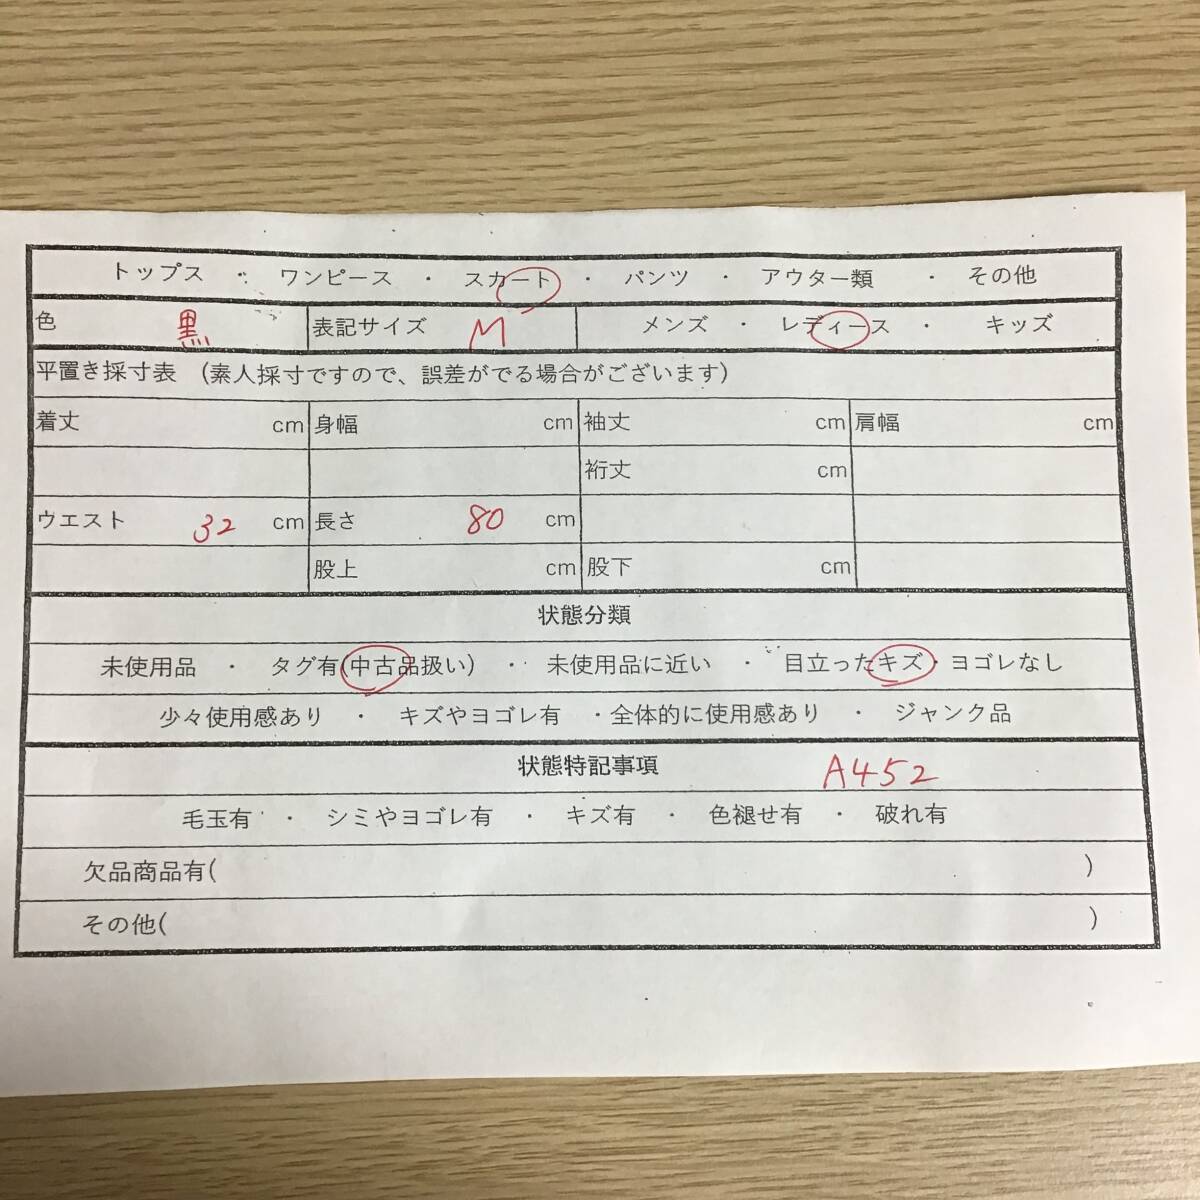 トップス ・ ワンピース ・ スカート ・ パンツ ・ アウター類 ・ その他
色 黒 表記サイズ M メンズ ・ レディース ・ キッズ
平置き採寸表 (素人採寸ですので、誤差がでる場合がございます)
着丈 cm 身幅 cm 袖丈 cm 肩幅 cm
裄丈 cm
ウエスト 32 cm 長さ 80 cm
股上 cm 股下 cm
状態分類
未使用品 ・ タグ有(中古品扱い) ・ 未使用品に近い ・ 目立ったキズ・ヨゴレなし
少々使用感あり ・ キズやヨゴレ有 ・全体的に使用感あり ・ ジャンク品
状態特記事項 A452
毛玉有 ・ シミやヨゴレ有 ・ キズ有 ・ 色褪せ有 ・ 破れ有
欠品商品有( )
その他( )